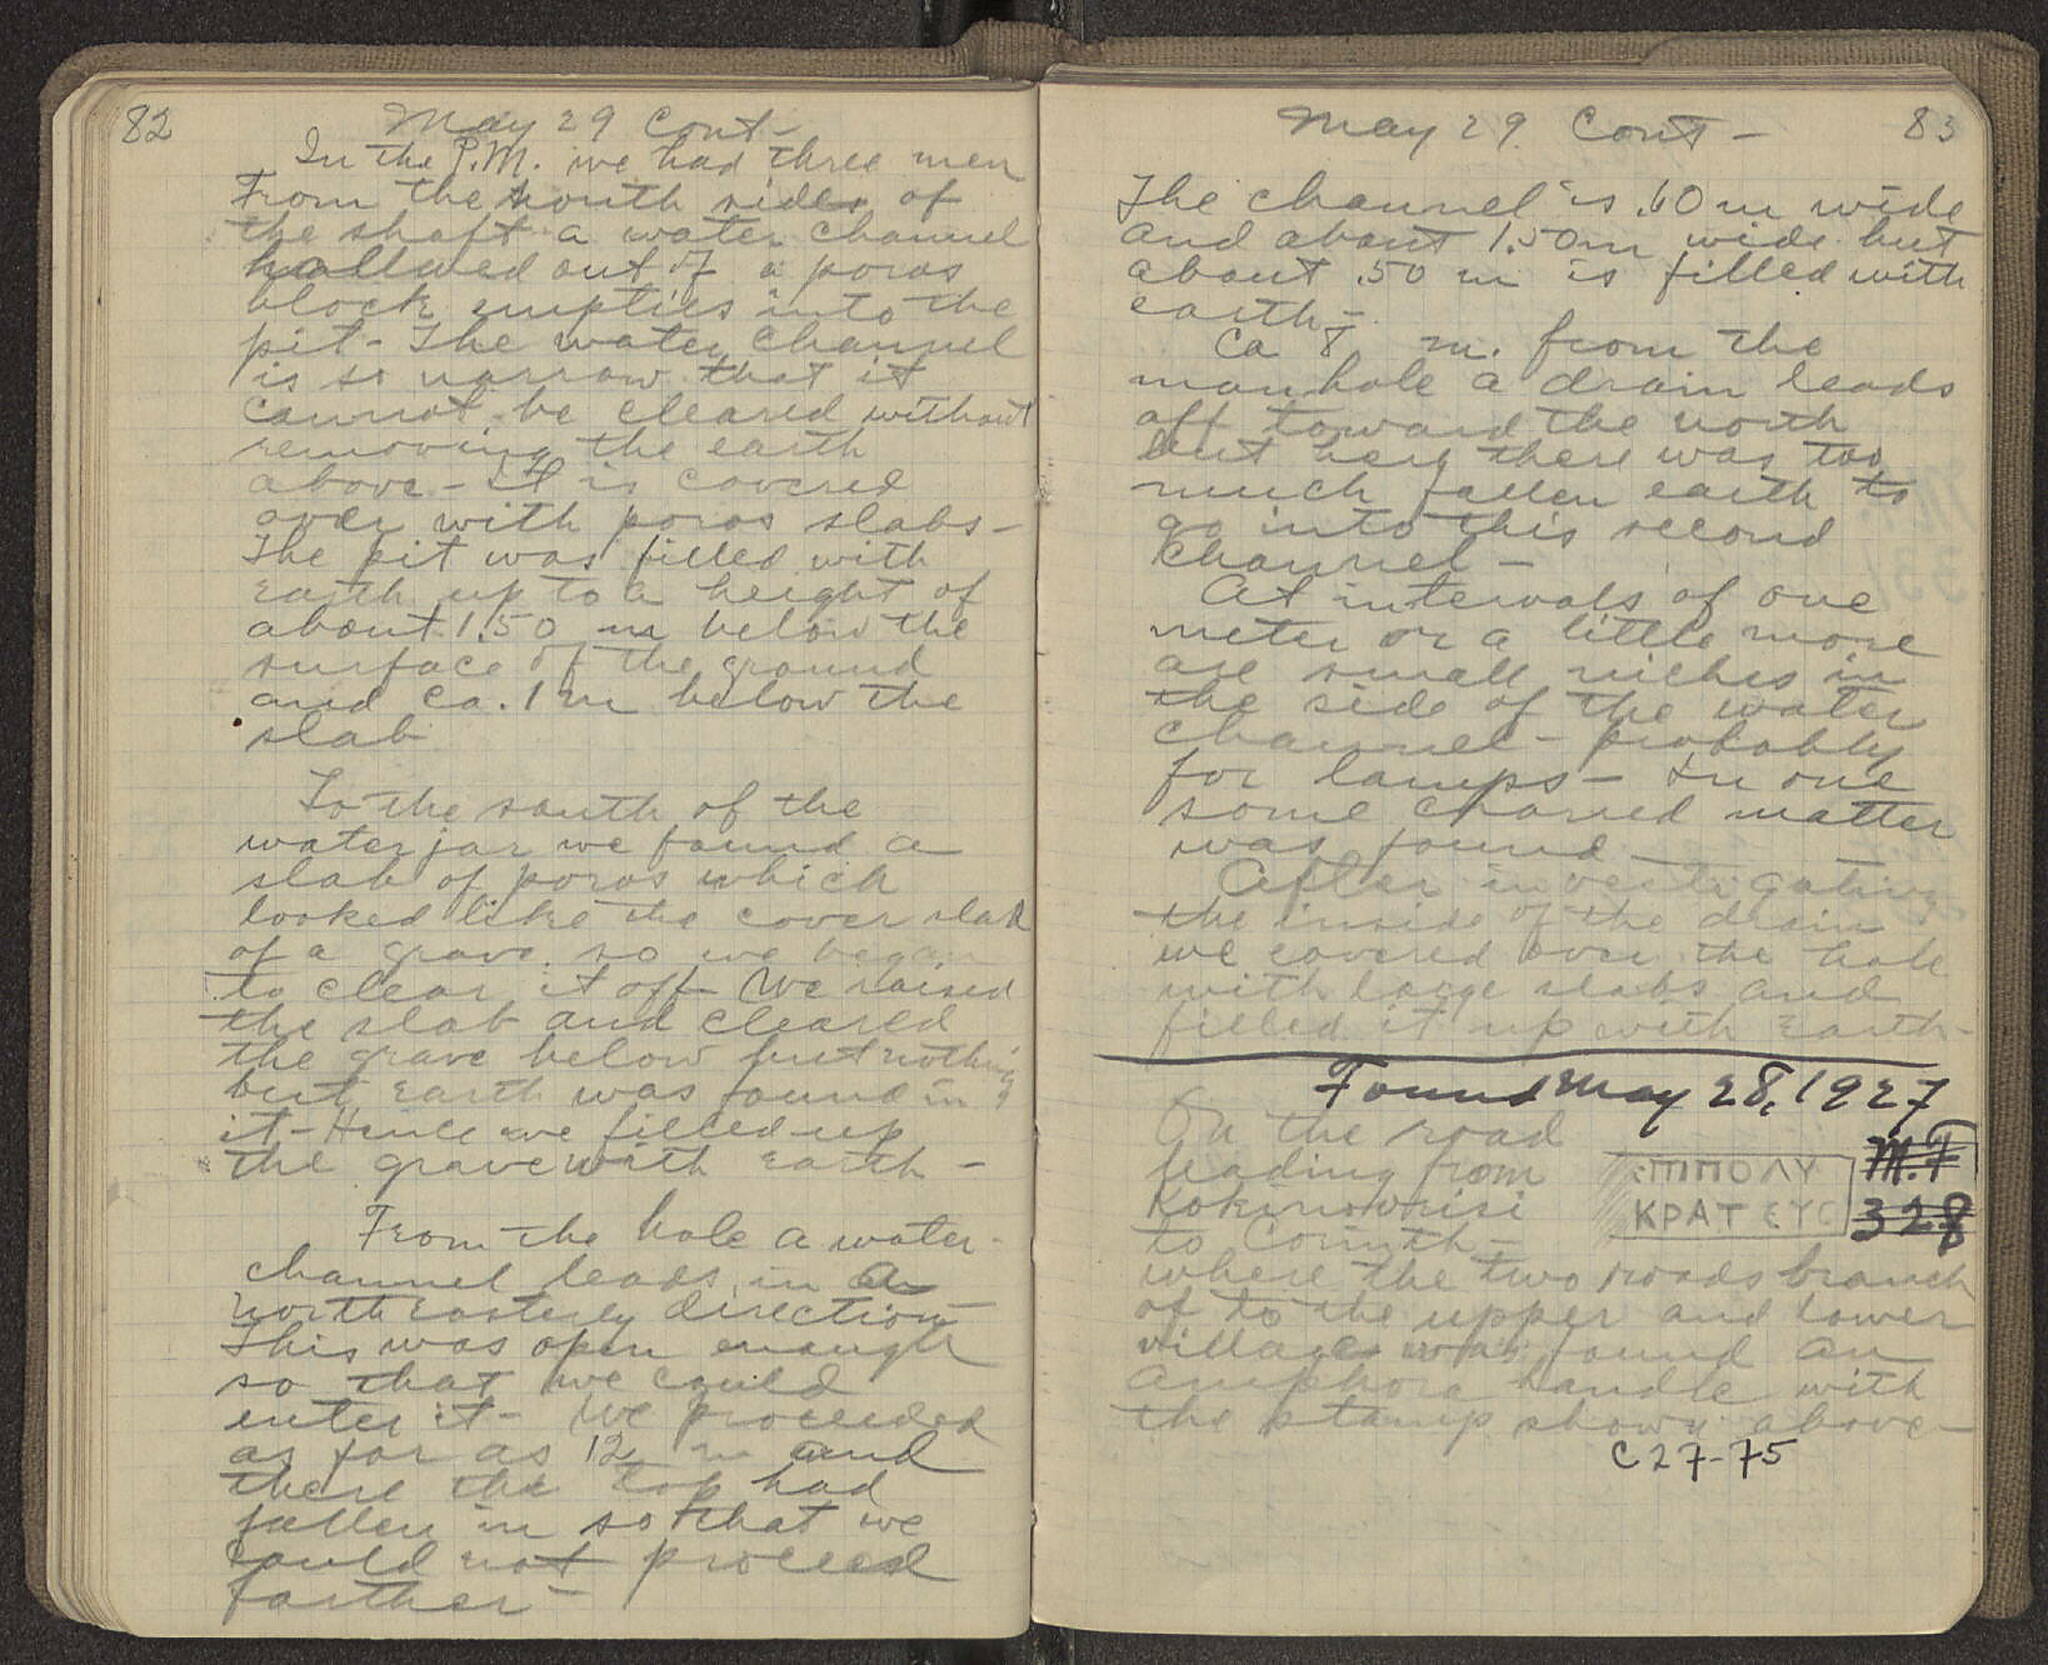 82
May 29 Cont-
In the P.M. we had three men
From the south sides of
the shaft a water channel
hollowed out of a poros
block empties into the
pit - The water channel
is so narrow that it
cannot be cleared without
removing the earth
above - It is covered
over with poros slabs -
The pit was filled with
earth up to a height of
about 1.50 m below the
surface of the ground
and ca. 1 m below the
slab
To the south of the
water jar we found a
slab of poros which
looked like the cover slab
of a grave so we began
to clear it off - We raised
the slab and cleared
the grave below but nothing
but earth was found in
it - Hence we filled up
the grave with earth -
From the hole a water
channel leads in a
north easterly direction
This was open enough
so that we could
enter it - We proceeded
as far as 12 m and
there the top had
fallen in so that we
could not proceed
farther -
May 29. Cont -
83
The channel is .60 m wide
and about 1.50 m wide but
about .50 m is filled with
earth -
Ca 8 m. from the
manhole a drain leads
off toward the north
but here there was too
much fallen earth to
go into this second
channel -
At intervals of one
meter or a little more
are small niches in
the side of the water
channel - probably
for lamps - In one
some charred matter
was found -
After investigating
the inside of the drain
we covered over the hole
with large slabs and
filled it up with earth -
Found May 28, 1927
On the road
leading from
to Corinth -
where the two roads branch
of to the upper and lower
village was found an
amphora handle with
the stamp shown above -
ΕΠΙΠΟΛΥ
ΚΡΑΤΕΥC
M.F
328
C 27-75